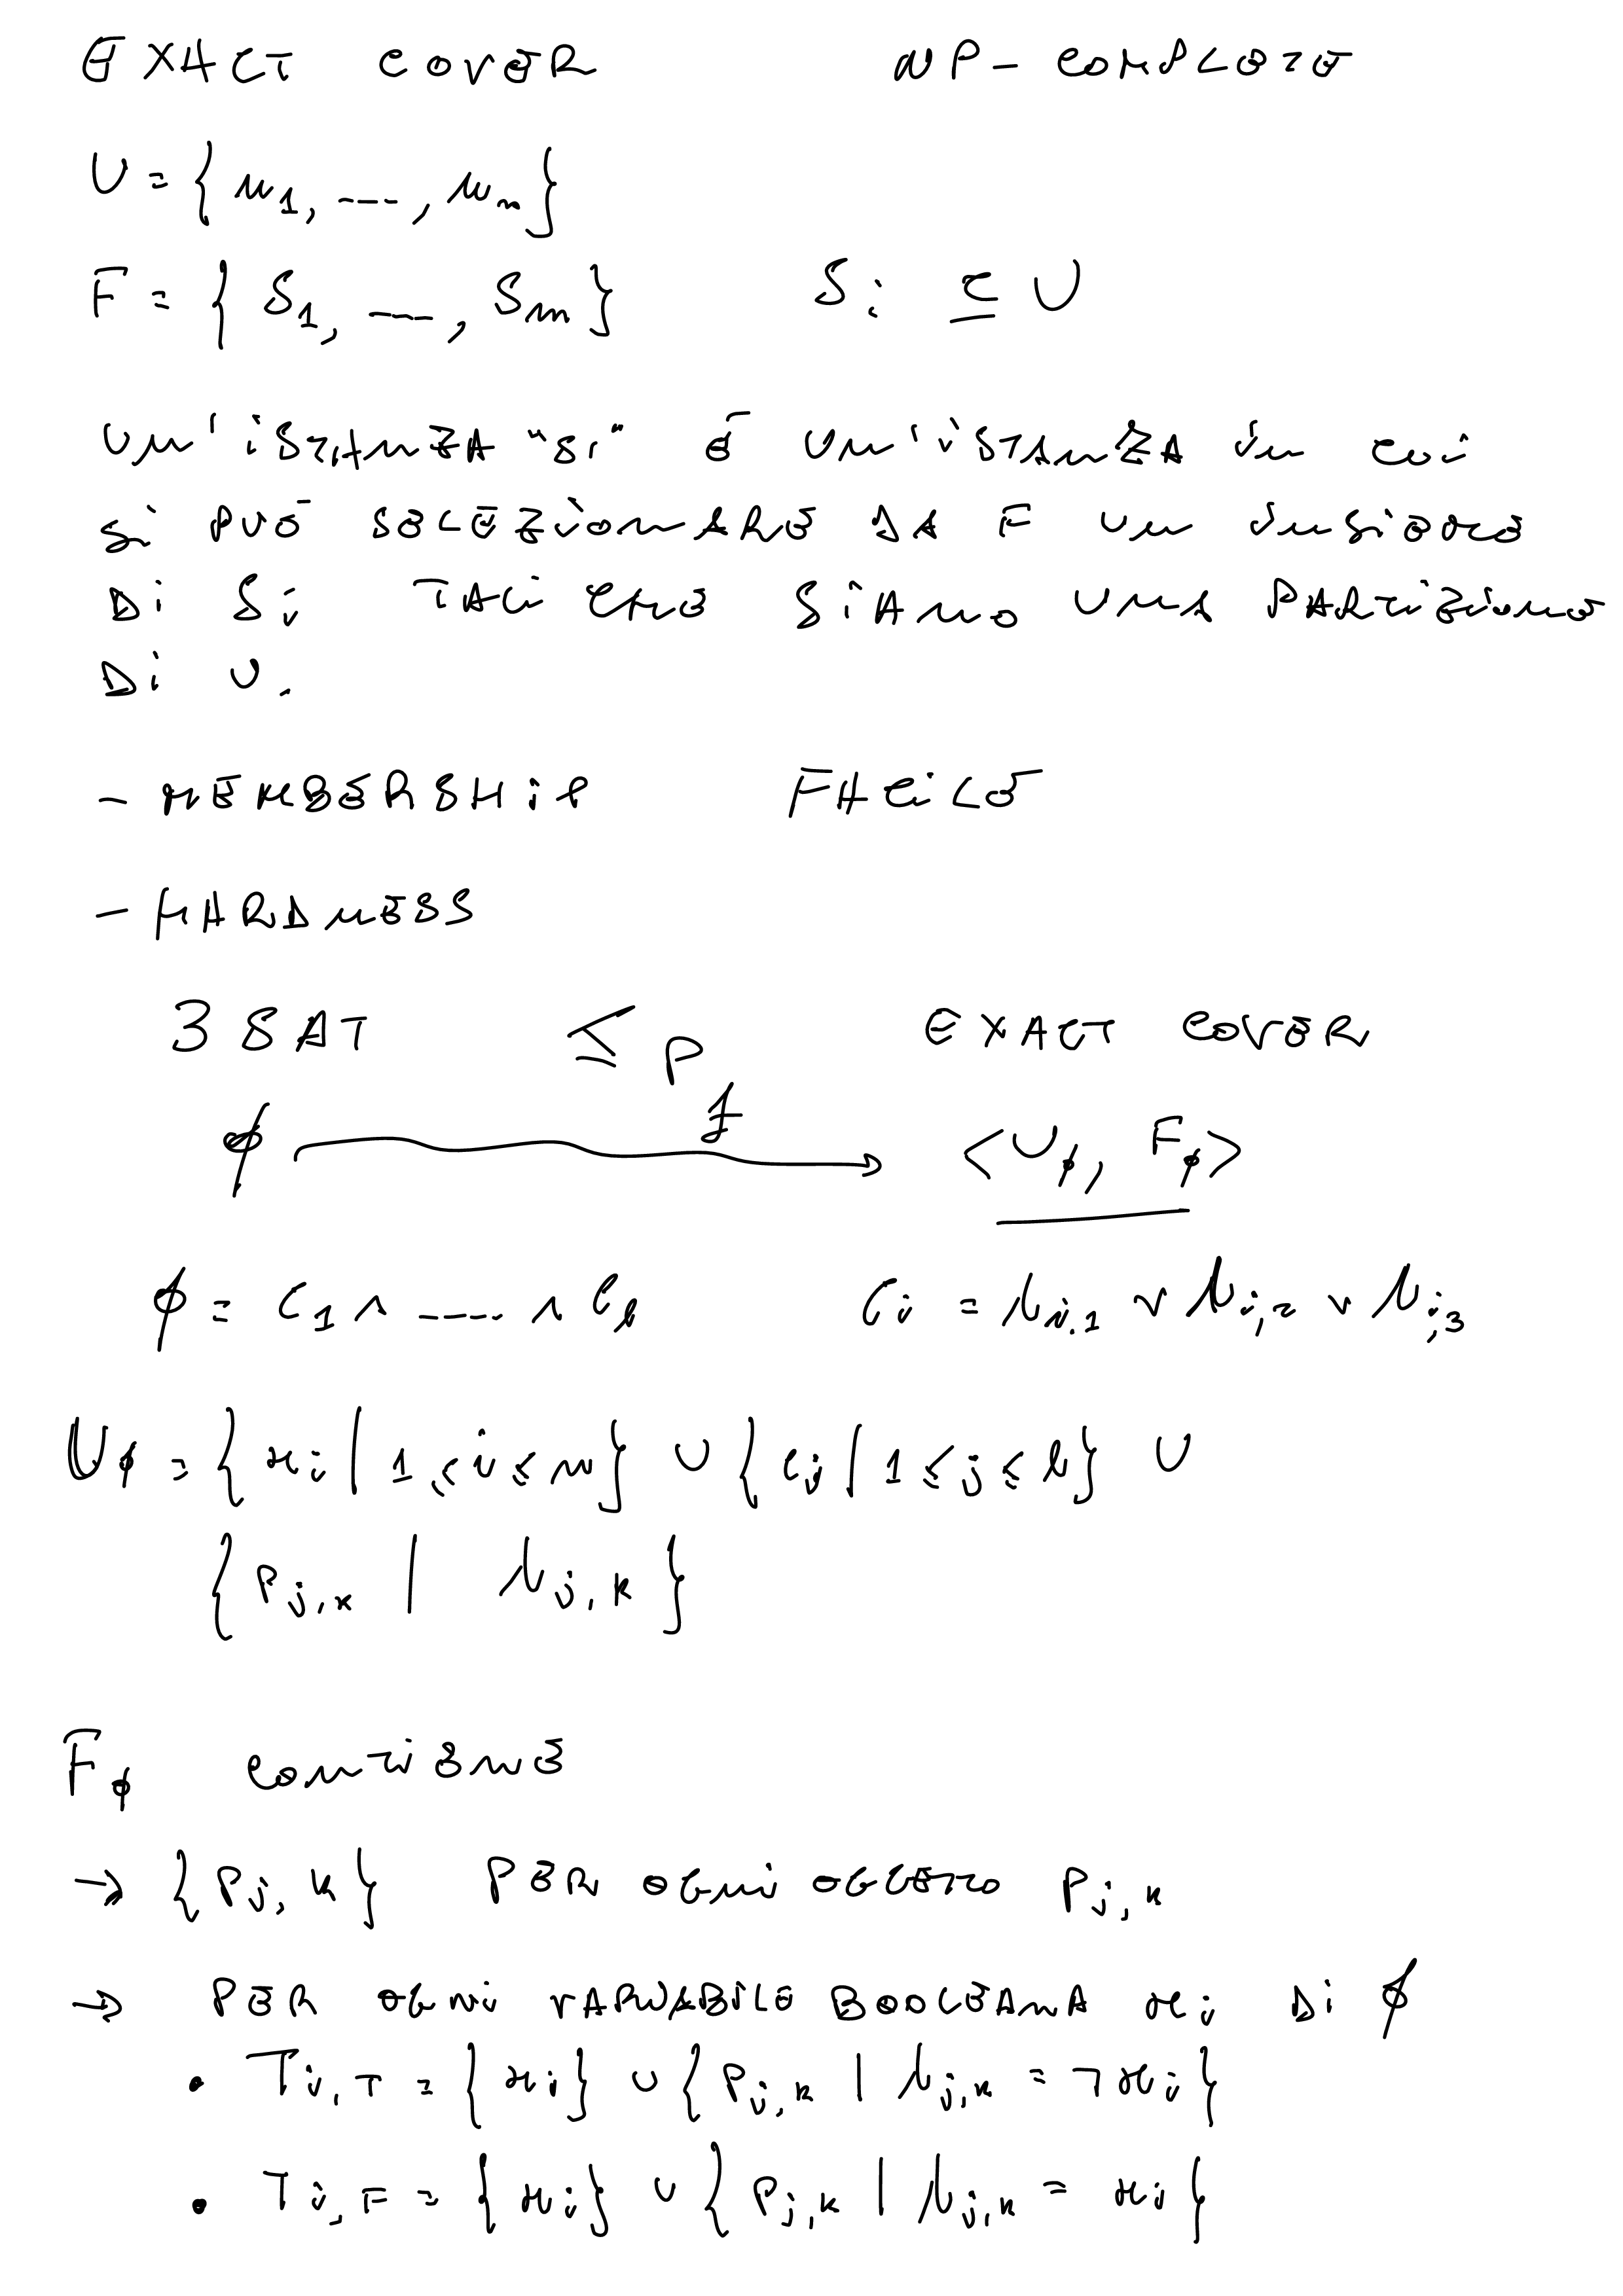 EXACT COVER NP-COMPLETE
U = {u₁, ----, uₙ}
F = { S₁, ----, Sₘ} Sᵢ ⊆ U
UN'ISTANZA "SI" È UN'ISTANZA IN CUI
SI PUÒ SELEZIONARE DA F UN INSIEME
DI Sᵢ TALI CHE SIANO UNA PARTIZIONE
DI U.
- MEMBERSHIP FACILE
- HARDNESS
3SAT ≤ₚ EXACT COVER
f
ϕ ⟶ <U_ϕ, F_ϕ>
ϕ = C₁ ∧ ---- ∧ C_l Cᵢ = λ_{i,1} ∨ λ_{j,2} ∨ λ_{j,3}
U_ϕ = {xᵢ | 1 ≤ i ≤ n} ∪ {cⱼ | 1 ≤ j ≤ l} ∪
{P_{j,k} | λ_{j,k}}
F_ϕ CONTIENE
→ {P_{j,k}} PER OGNI OGGETTO P_{j,k}
→ PER OGNI VARIABILE BOOLEANA xᵢ DI ϕ
• T_{i,T} = {xᵢ} ∪ {P_{j,k} | λ_{j,k} = ¬xᵢ}
• T_{i,F} = {xᵢ} ∪ {P_{j,k} | λ_{j,k} = xᵢ}